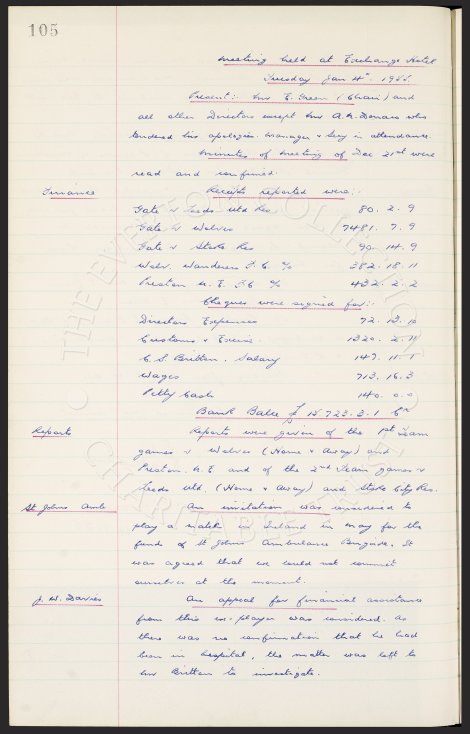 105
Meeting held at Exchange Hotel
Tuesday Jan 4th 1955.
Present:- Mr E. Green (Chair) and
all other Directors except Mr A.N. Denaro who
tendered his apologies. Manager & Secy in attendance.
Minutes of Meeting of Dec 21st were
read and confirmed.
Finance
Receipts reported were:-
Gate v Leeds Utd Res 80. 2. 9
Gate v Wolves 7481. 7. 9
Gate v Stoke Res 90. 14. 9
Wolv. Wanderers F.C. % 382. 18. 11
Preston N.E. FC % 432. 2. 2
Cheques were signed for:-
Directors Expenses 72. 13. 10
Customs & Excise 1320. 2. 11
C.S. Britton. Salary 147. 11. 1
Wages 713. 16. 3
Petty Cash 140. 0. 0
Bank Balce £ 15,723. 3. 1 Cr
Reports
Reports were given of the 1st Team
games v Wolves (Home & Away) and
Preston. N.E and of the 2nd Team games v
Leeds Utd. (Home & Away) and Stoke City Res.
St Johns Amb
An invitation was considered to
play a match in Ireland in May for the
funds of St Johns Ambulance Brigade. It
was agreed that we could not commit
ourselves at the moment.
J. W. Davies
An appeal for financial assistance
from this ex-player was considered. As
there was no confirmation that he had
been in hospital, the matter was left to
Mr Britton to investigate.
THE EVERTON COLLECTION
CHARITABLE TRUST